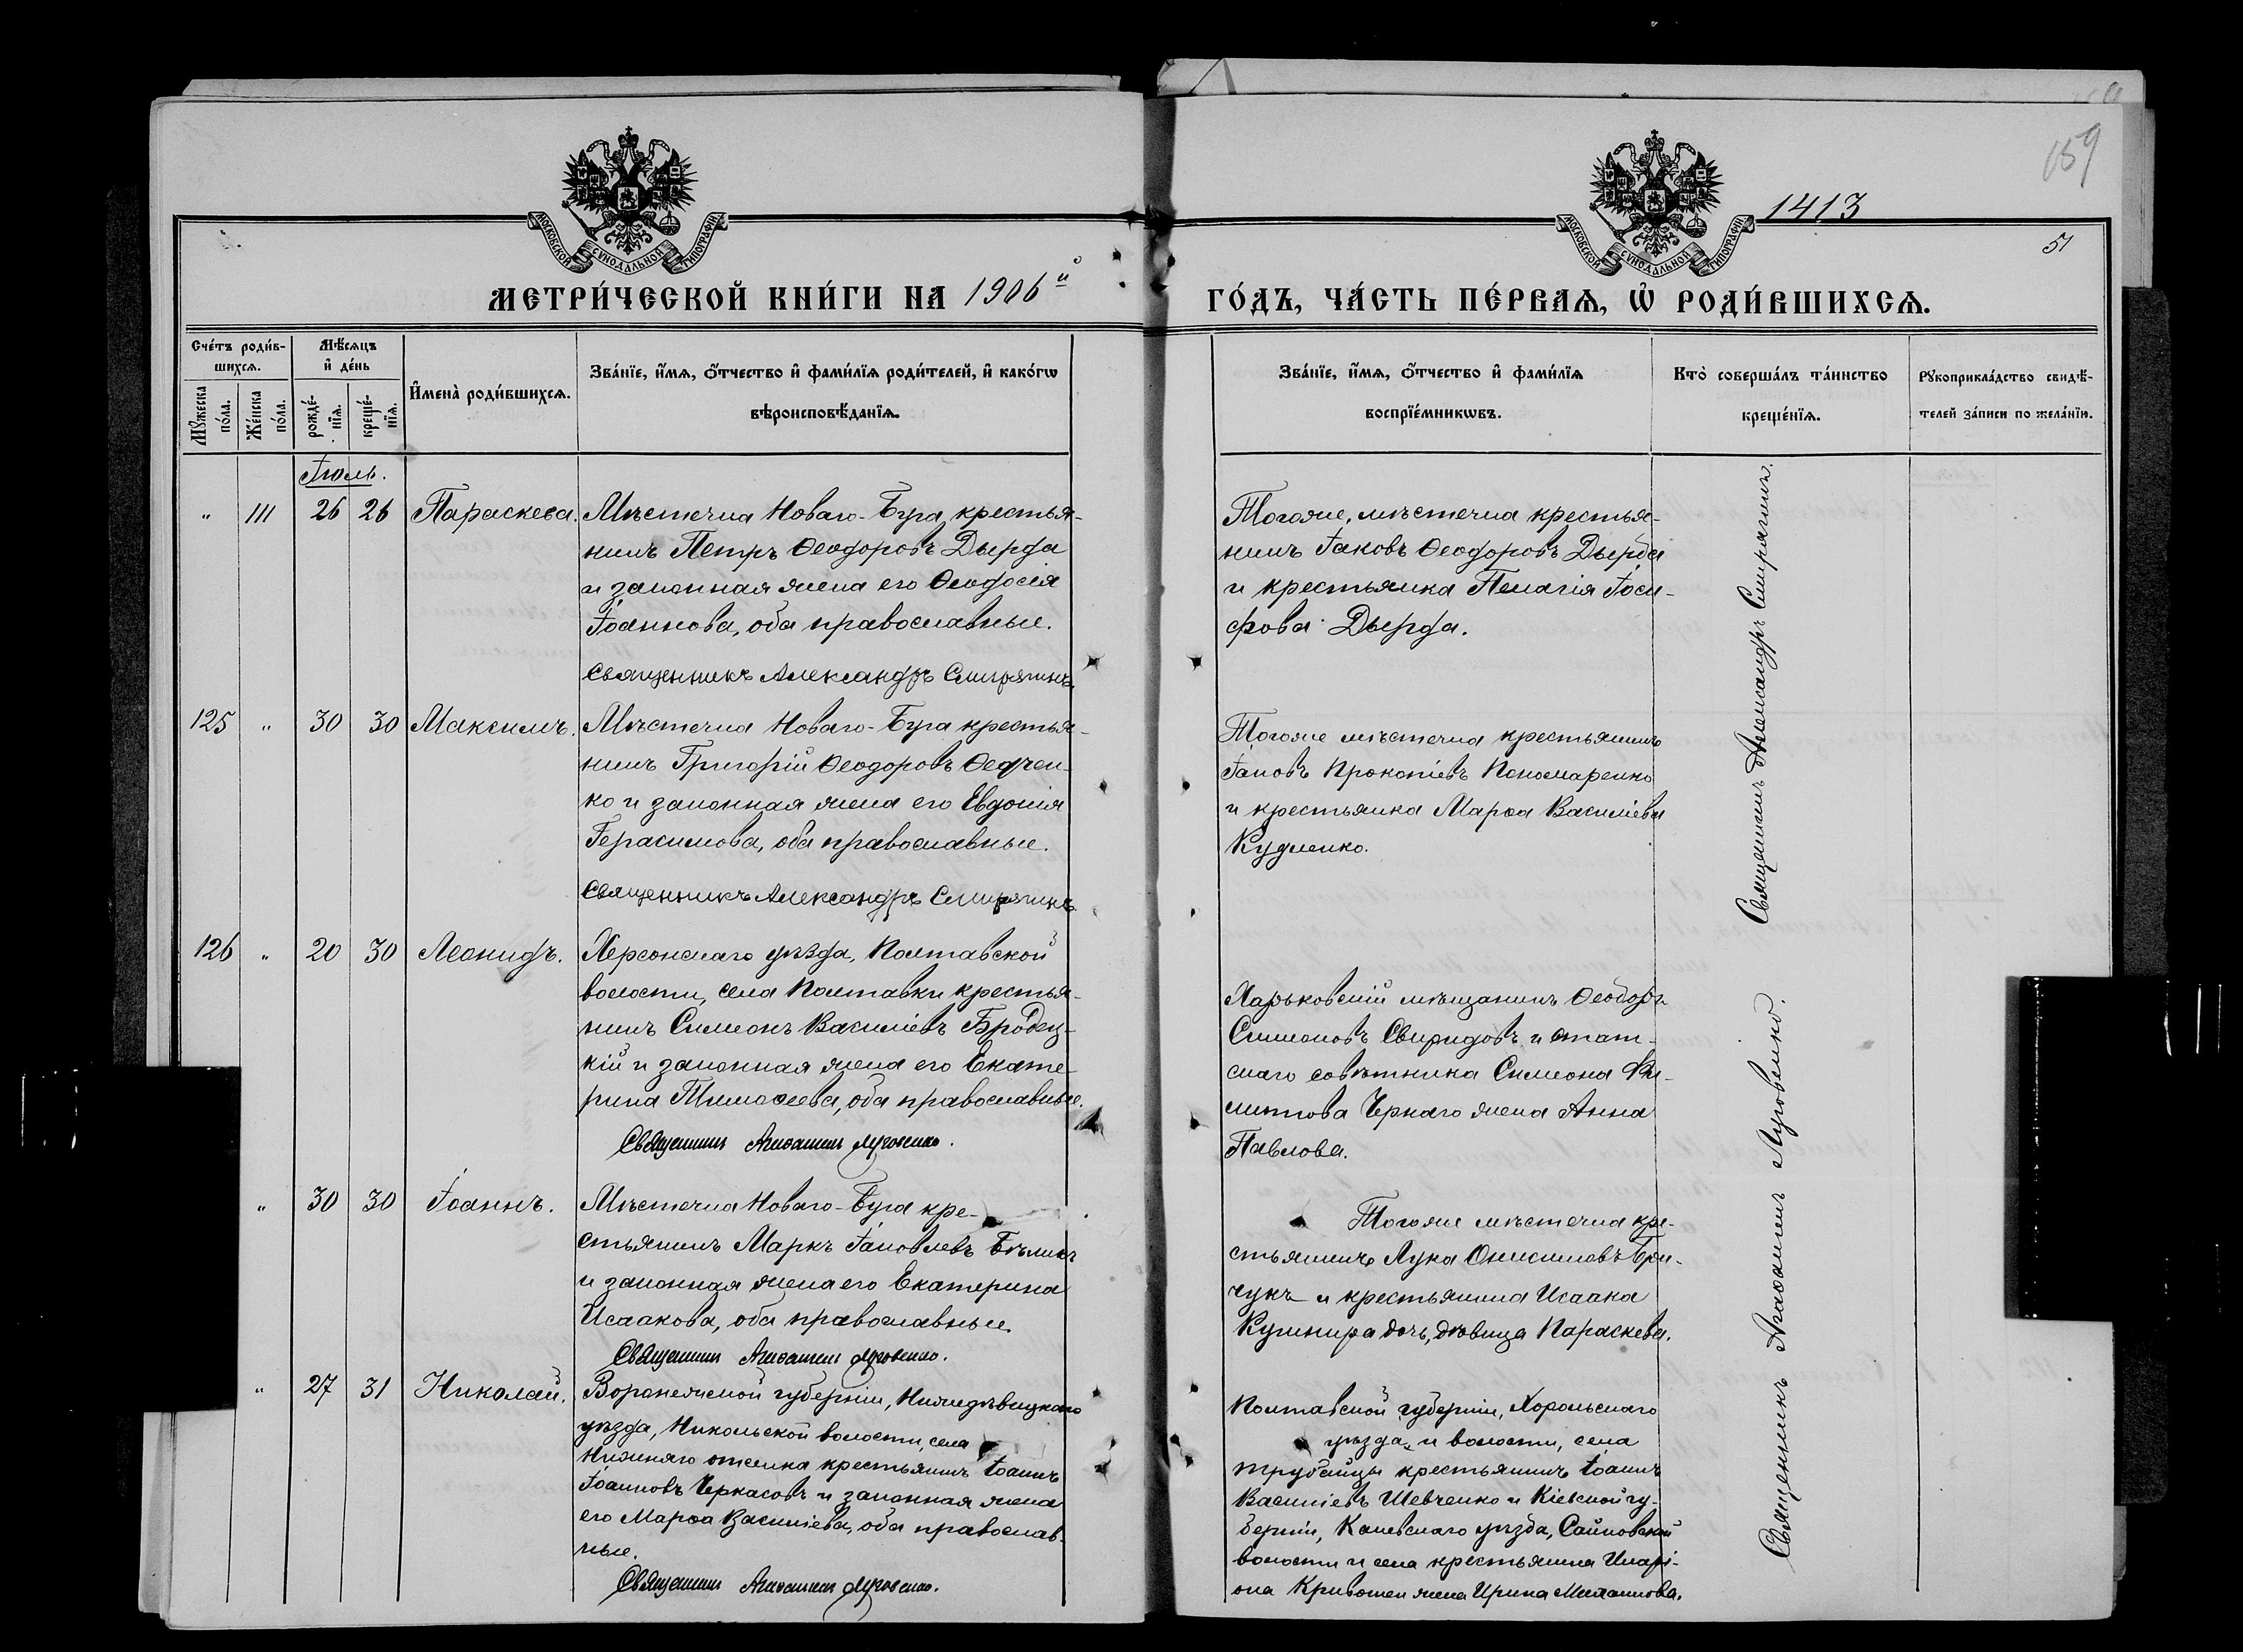 159
1413
51
МОСКОВСКОЙ СУНОДАЛЬНОЙ ТИПОГРАФІИ
МОСКОВСКОЙ СУНОДАЛЬНОЙ ТИПОГРАФІИ
МЕТРИ́ЧЕСКОЙ КНИ́ГИ НА 1906й
ГО́ДЪ, ЧА́СТЬ ПЕ́РВАѦ, Ѡ РОДИ́ВШИХСѦ.
Сче́тъ роди́в-
шихсѧ.
Мꙋжеска по́ла.
Же́нска по́ла.
Мѣ́сѧцъ
и҆ де́нь
рожде́-
нїѧ.
креще́-
нїѧ.
И҆мена̀ роди́вшихсѧ.
Зва́нїе, и҆́мѧ, ѻ҆́тчество и҆ фами́лїѧ роди́телей, и҆ како́гѡ
вѣроисповѣ́данїѧ.
Зва́нїе, и҆́мѧ, ѻ҆́тчество и҆ фами́лїѧ
воспрїе́мникѡвъ.
Кто̀ соверша́лъ та́инство
креще́нїѧ.
Рꙋкоприкла́дство свидѣ́-
телей за́писи по жела́нїю.
Іюль.
" 111 26 26 Параскева.
Мѣстечка Новаго-Буга, крестья-
нинъ Петръ Ѳеодоровъ Дырда
и законная жена его Ѳеодосія
Іоаннова, оба православные.
Священникъ Александръ Смирягинъ.
Тогоже, мѣстечка крестья-
нинъ Іаковъ Ѳеодоровъ Дырда
и крестьянка Пелагія Іоси-
фова Дырда.
125 " 30 30 Максимъ.
Мѣстечка Новаго-Буга крестья-
нинъ Григорій Ѳеодоровъ Ѳедчен-
ко и законная жена его Евдокія
Герасимова, оба православные.
Священникъ Александръ Смирягинъ.
Тогоже мѣстечка крестьянинъ
Іаковъ Прокопіевъ Пономаренко
и крестьянка Марѳа Василіева
Кудленко.
Священникъ Александръ Смирягинъ.
126 " 20 30 Леонидъ.
Херсонскаго уѣзда, Полтавской
волости, села Полтавки крестья-
нинъ Симеонъ Василіевъ Бродец-
кій и законная жена его Екате-
рина Тимоѳеева, оба православные.
Священникъ Агаѳангелъ Луговенко.
Харьковскій мѣщанинъ Ѳеодоръ
Симеоновъ Свиридовъ и стат-
скаго совѣтника Симеона
Чернаго жена Анна
Павлова.
" 30 30 Іоаннъ.
Мѣстечка Новаго-Буга кре-
стьянинъ Маркъ Іаковлевъ Бѣликъ
и законная жена его Екатерина
Исаакова, оба православные.
Священникъ Агаѳангелъ Луговенко.
Тогоже мѣстечка кре-
стьянинъ Лука Онисимовъ Бри-
чукъ и крестьянина Исаака
Кушнира дочь, дѣвица Параскева.
" 27 31 Николай.
Воронежской губерніи, Нижнедѣвицкаго
уѣзда, Никольской волости, села
Нижняго крестьянинъ Іоаннъ
Іоанновъ Черкасовъ и законная жена
его Марѳа Василіева, оба православ-
ные.
Священникъ Агаѳангелъ Луговенко.
Полтавской губерніи, Хорольскаго
уѣзда, и волости, села
Трубайцы крестьянинъ Іоаннъ
Василіевъ Шевченко и Кіевской гу-
берніи, Каневскаго уѣзда,
волости и села крестьянина Иларі-
она жена Ирина Михаилова.
Священникъ Агаѳангелъ Луговенко.